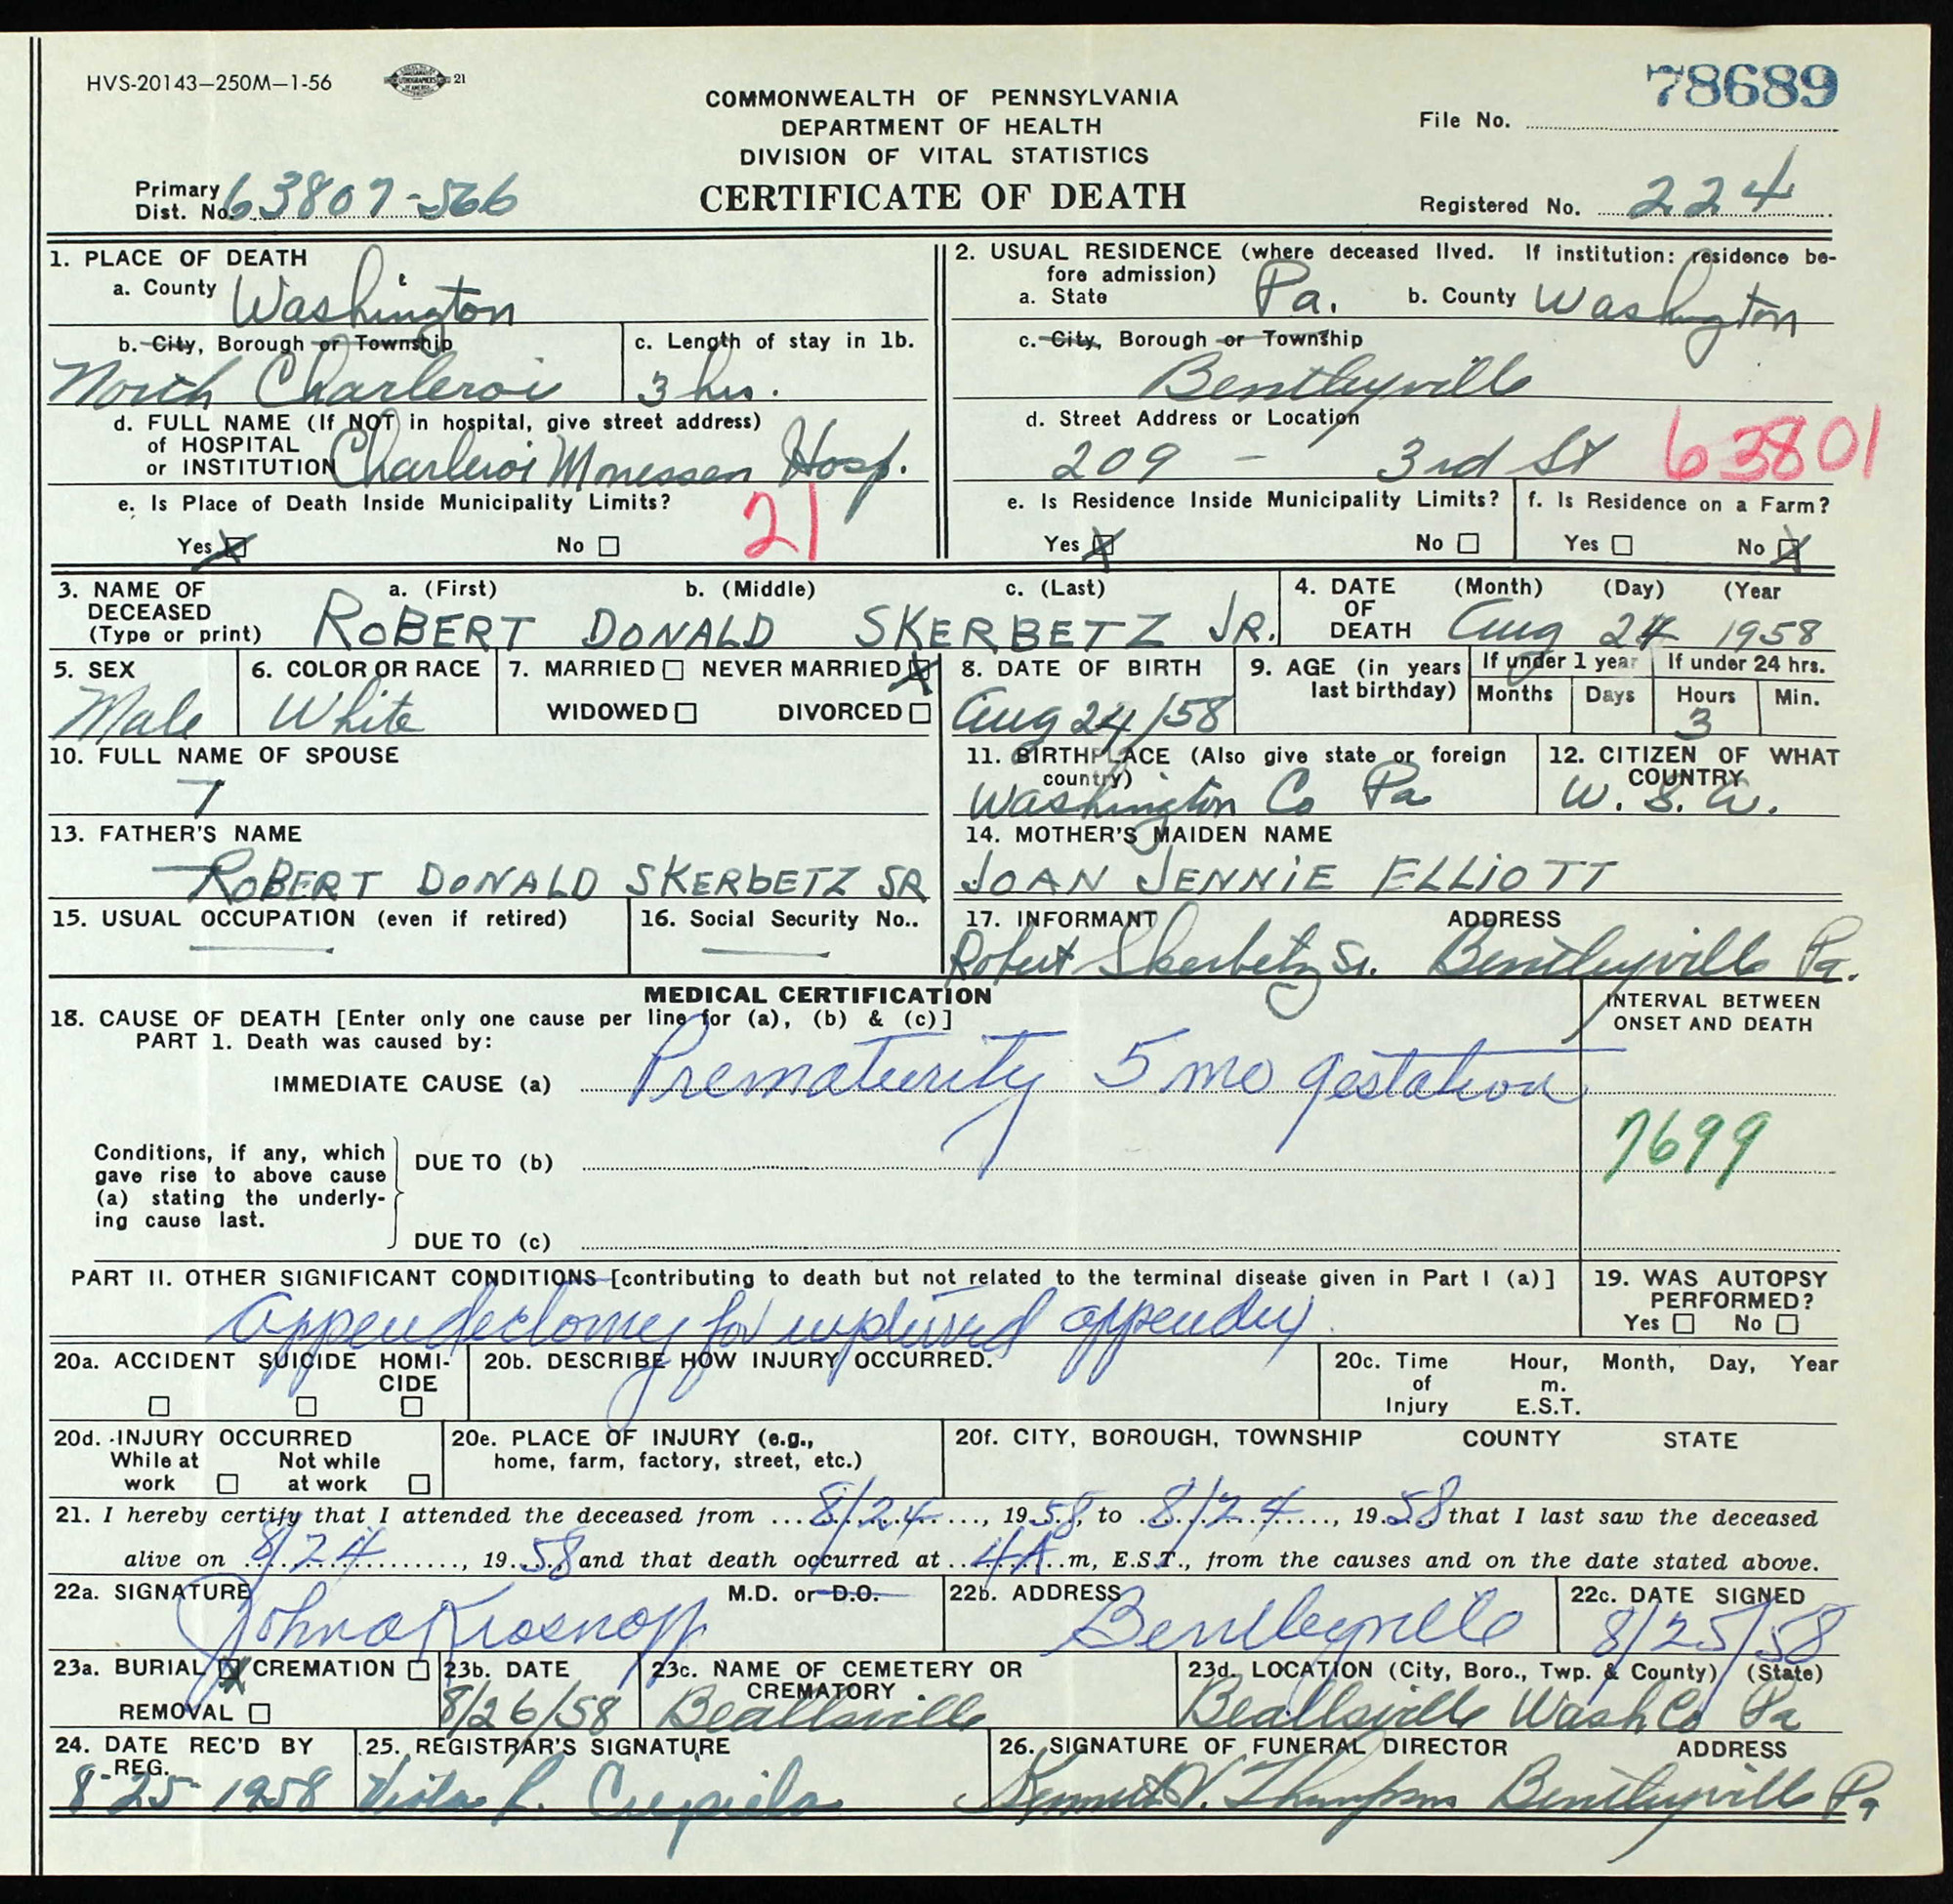 HVS-20143—250M—1-56 21
78689
COMMONWEALTH OF PENNSYLVANIA
DEPARTMENT OF HEALTH
DIVISION OF VITAL STATISTICS
CERTIFICATE OF DEATH
File No.
Primary Dist. No. 63807-566
Registered No. 224
1. PLACE OF DEATH
a. County Washington
b. City, Borough or Township
North Charleroi
c. Length of stay in 1b.
3 hrs.
d. FULL NAME (If NOT in hospital, give street address)
of HOSPITAL
or INSTITUTION Charleroi Monessen Hosp.
e. Is Place of Death Inside Municipality Limits?
21
Yes No
2. USUAL RESIDENCE (where deceased lived. If institution: residence be-
fore admission)
a. State Pa. b. County Washington
c. City, Borough or Township
Bentleyville
d. Street Address or Location
209 - 3rd St 63801
e. Is Residence Inside Municipality Limits?
Yes No
f. Is Residence on a Farm?
Yes No
3. NAME OF DECEASED (Type or print)
a. (First) b. (Middle) c. (Last)
ROBERT DONALD SKERBETZ JR.
4. DATE OF DEATH (Month) (Day) (Year
Aug 24 1958
5. SEX
Male
6. COLOR OR RACE
White
7. MARRIED NEVER MARRIED
WIDOWED DIVORCED
8. DATE OF BIRTH
Aug 24/58
9. AGE (in years last birthday)
If under 1 year If under 24 hrs.
Months Days Hours Min.
3
10. FULL NAME OF SPOUSE
11. BIRTHPLACE (Also give state or foreign country)
Washington Co Pa
12. CITIZEN OF WHAT COUNTRY
U. S. A.
13. FATHER'S NAME
ROBERT DONALD SKERBETZ SR
14. MOTHER'S MAIDEN NAME
JOAN JENNIE ELLIOTT
15. USUAL OCCUPATION (even if retired)
16. Social Security No..
17. INFORMANT ADDRESS
Robert Skerbetz Sr. Bentleyville Pa.
MEDICAL CERTIFICATION
18. CAUSE OF DEATH [Enter only one cause per line for (a), (b) & (c)]
INTERVAL BETWEEN ONSET AND DEATH
PART 1. Death was caused by:
IMMEDIATE CAUSE (a) Prematurity 5 mo gestation
7699
Conditions, if any, which
gave rise to above cause
(a) stating the underly-
ing cause last.
DUE TO (b)
DUE TO (c)
PART II. OTHER SIGNIFICANT CONDITIONS [contributing to death but not related to the terminal disease given in Part I (a)]
appendectomy for ruptured appendix
19. WAS AUTOPSY PERFORMED?
Yes No
20a. ACCIDENT SUICIDE HOMI-
CIDE
20b. DESCRIBE HOW INJURY OCCURRED.
20c. Time of Injury Hour, Month, Day, Year
m.
E.S.T.
20d. INJURY OCCURRED
While at work Not while at work
20e. PLACE OF INJURY (e.g.,
home, farm, factory, street, etc.)
20f. CITY, BOROUGH, TOWNSHIP COUNTY STATE
21. I hereby certify that I attended the deceased from 8/24, 1958, to 8/24, 1958 that I last saw the deceased
alive on 8/24, 1958 and that death occurred at 4A m, E.S.T., from the causes and on the date stated above.
22a. SIGNATURE M.D. or D.O.
John A Krosnoff
22b. ADDRESS
Bentleyville
22c. DATE SIGNED
8/25/58
23a. BURIAL CREMATION
REMOVAL
23b. DATE
8/26/58
23c. NAME OF CEMETERY OR CREMATORY
Beallsville
23d. LOCATION (City, Boro., Twp. & County) (State)
Beallsville Wash Co Pa
24. DATE REC'D BY REG.
8-25-1958
25. REGISTRAR'S SIGNATURE
26. SIGNATURE OF FUNERAL DIRECTOR ADDRESS
Kenneth V. Thompson Bentleyville Pa